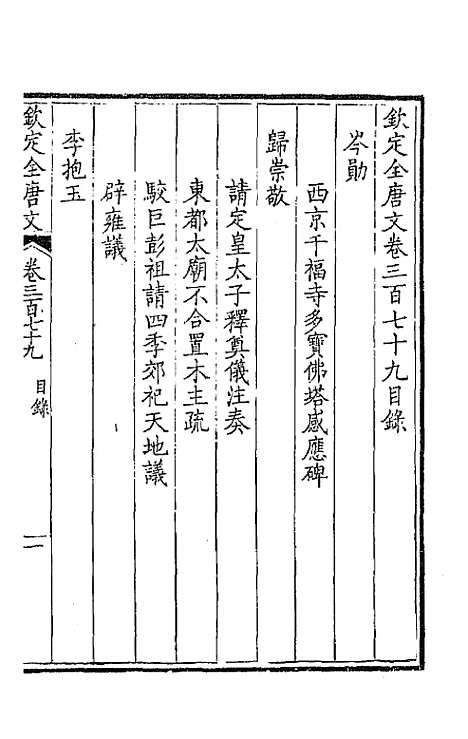 欽定全唐文卷三百七十九目錄
岑勛
西京千福寺多寶佛塔感應碑
歸崇敬
請定皇太子釋奠儀注奏
東都太廟不合置木主疏
駮巨彭祖請四季郊祀天地議
辟雍議
李抱玉
欽定全唐文 卷三百七十九 目錄 一